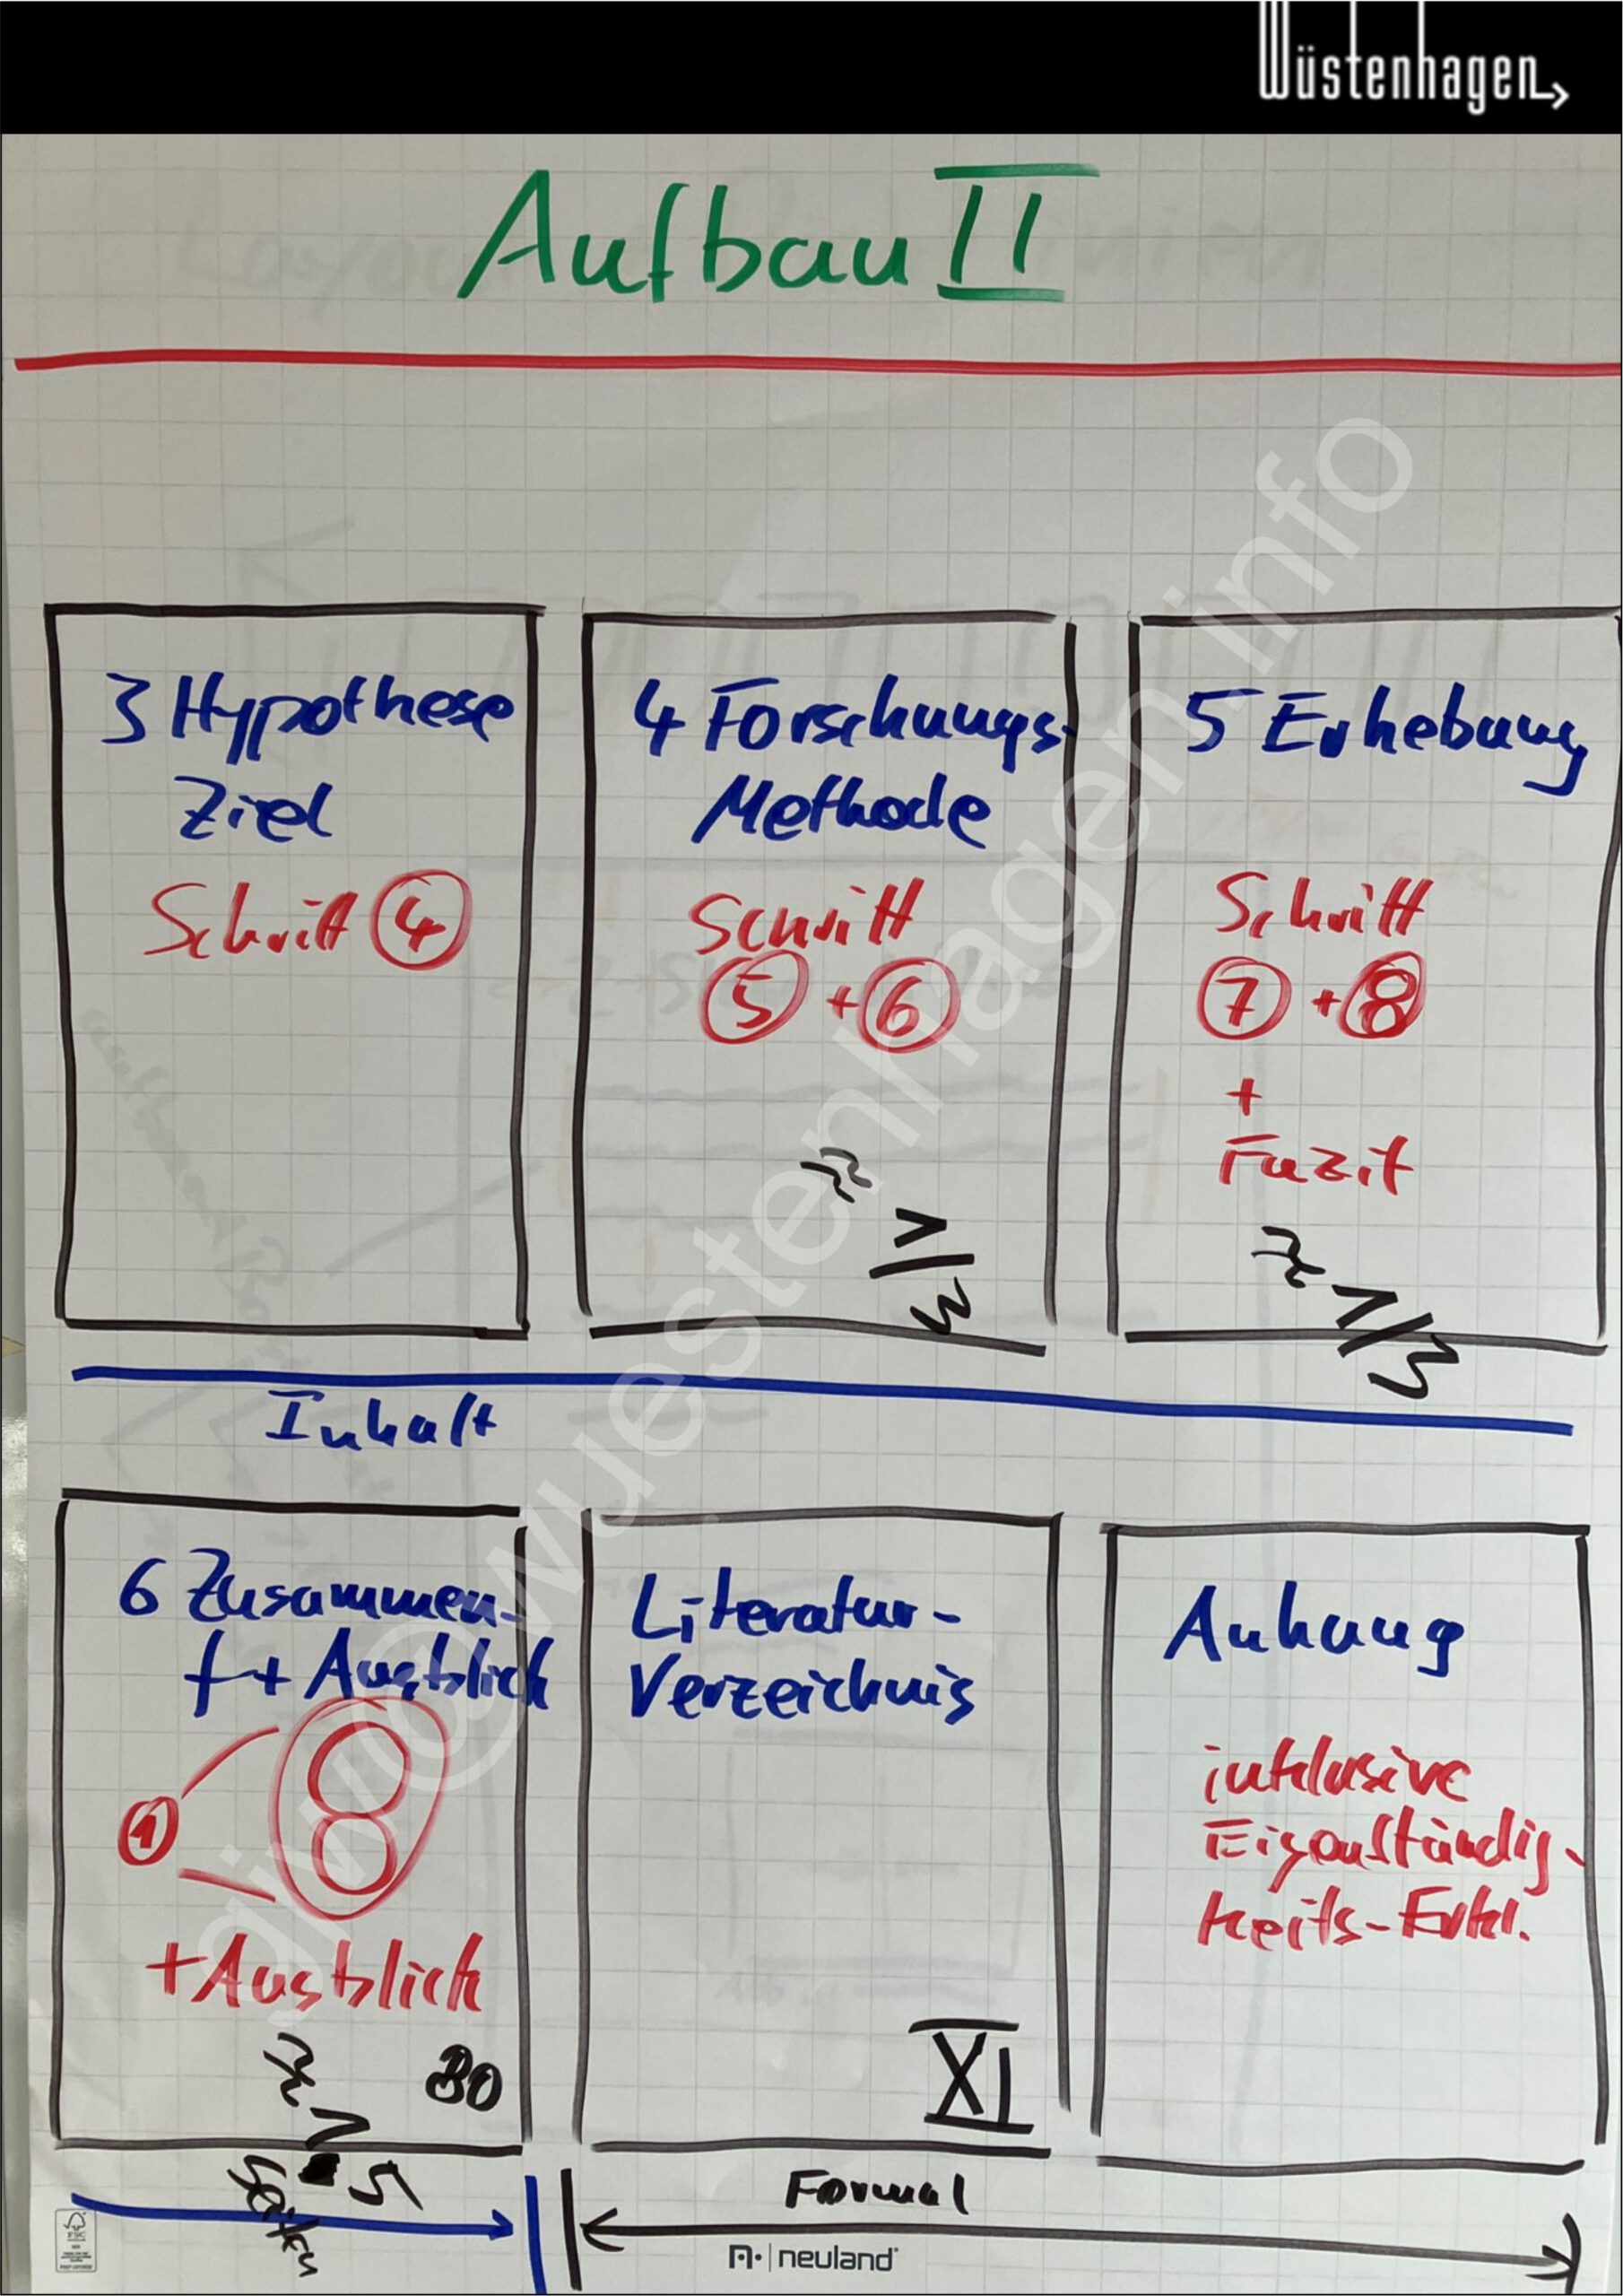 Wüstenhagen
Aufbau II
3 Hypothese
Ziel
Schritt 4
4 Forschungs-
Methode
Schritt
5 + 6
≈ 1/3
5 Erhebung
Schritt
7 + 8
+
Fazit
≈ 1/3
Inhalt
6 Zusammen-
f + Ausblick
1
8
+ Ausblick
≈ 1-5
Seiten
80
Literatur-
Verzeichnis
XI
Anhang
inklusive
Eigenständig-
keits-Erkl.
Formal
FSC
neuland
gjw@wuestenhagen.info